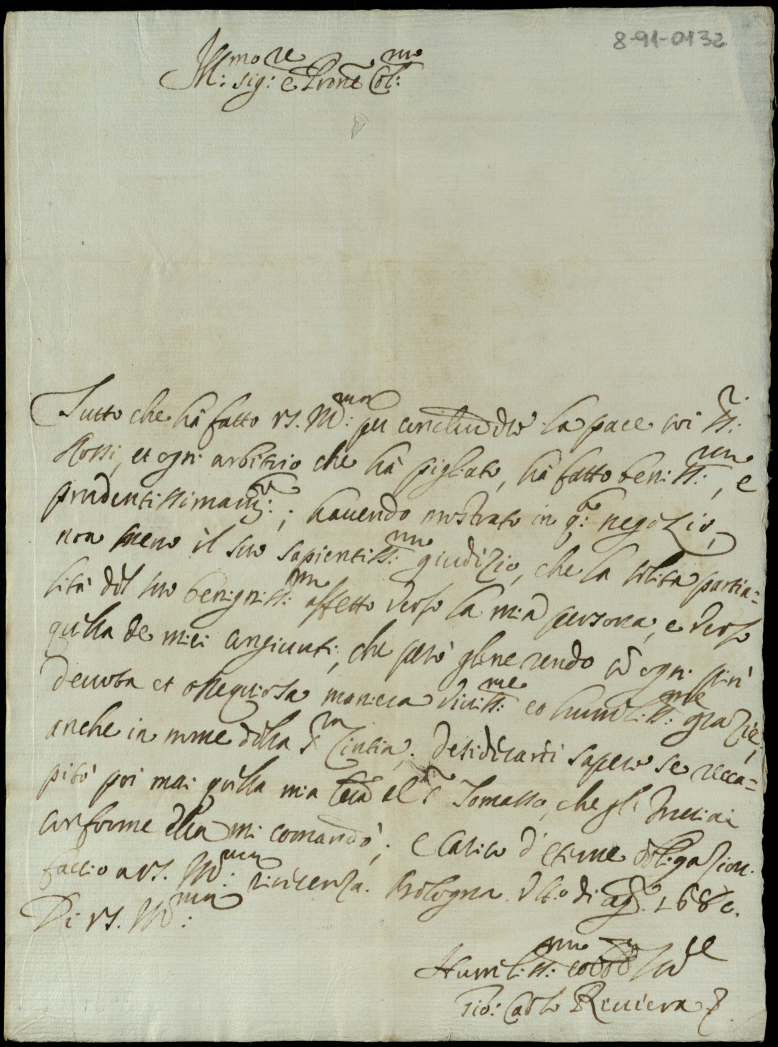 8-91-0132
Ill:mo Sig:re e Prone Col:mo
Tutto che hà fatto VS. Ill:ma per concluder la pace coi SS:ri
Rossi, et ogni arbitrio che hà pigliato, hà fatto beniss:mo, e
prudentissimam:te; hauendo mostrato in q:to negozio,
non meno il suo sapientiss:mo giudizio, che la solita parzia=
lità del suo benigniss:mo affetto verso la mia persona, e verso
quella de miei congiunti, che però gliene rendo con ogni più
deuota et ossequiosa maniera viuiss:me et humiliss:me grazie,
anche in nome della S:ra Cintia; desiderarei sapere se recca=
pitò poi mai quella mia al S:r Tomasso, che gli inuiai
conforme ella mi comandò; e carico d'eterne obligazion.
faccio a VS. Ill:ma riuerenza. Bologna di ag:o 1680.
Di VS. Ill:ma
Humiliss:mo
Gio: Carlo Riuiera